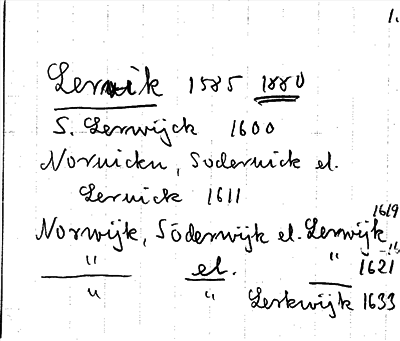 1.
Lerwik 1585 1880
S. Lerwijck 1600
Norwickn, Soderwick el.
Lerwick 1611
1619
Norwijk, Söderwijk el. Lerwijk
" el. " 1621
" " Lerkwijk 1633